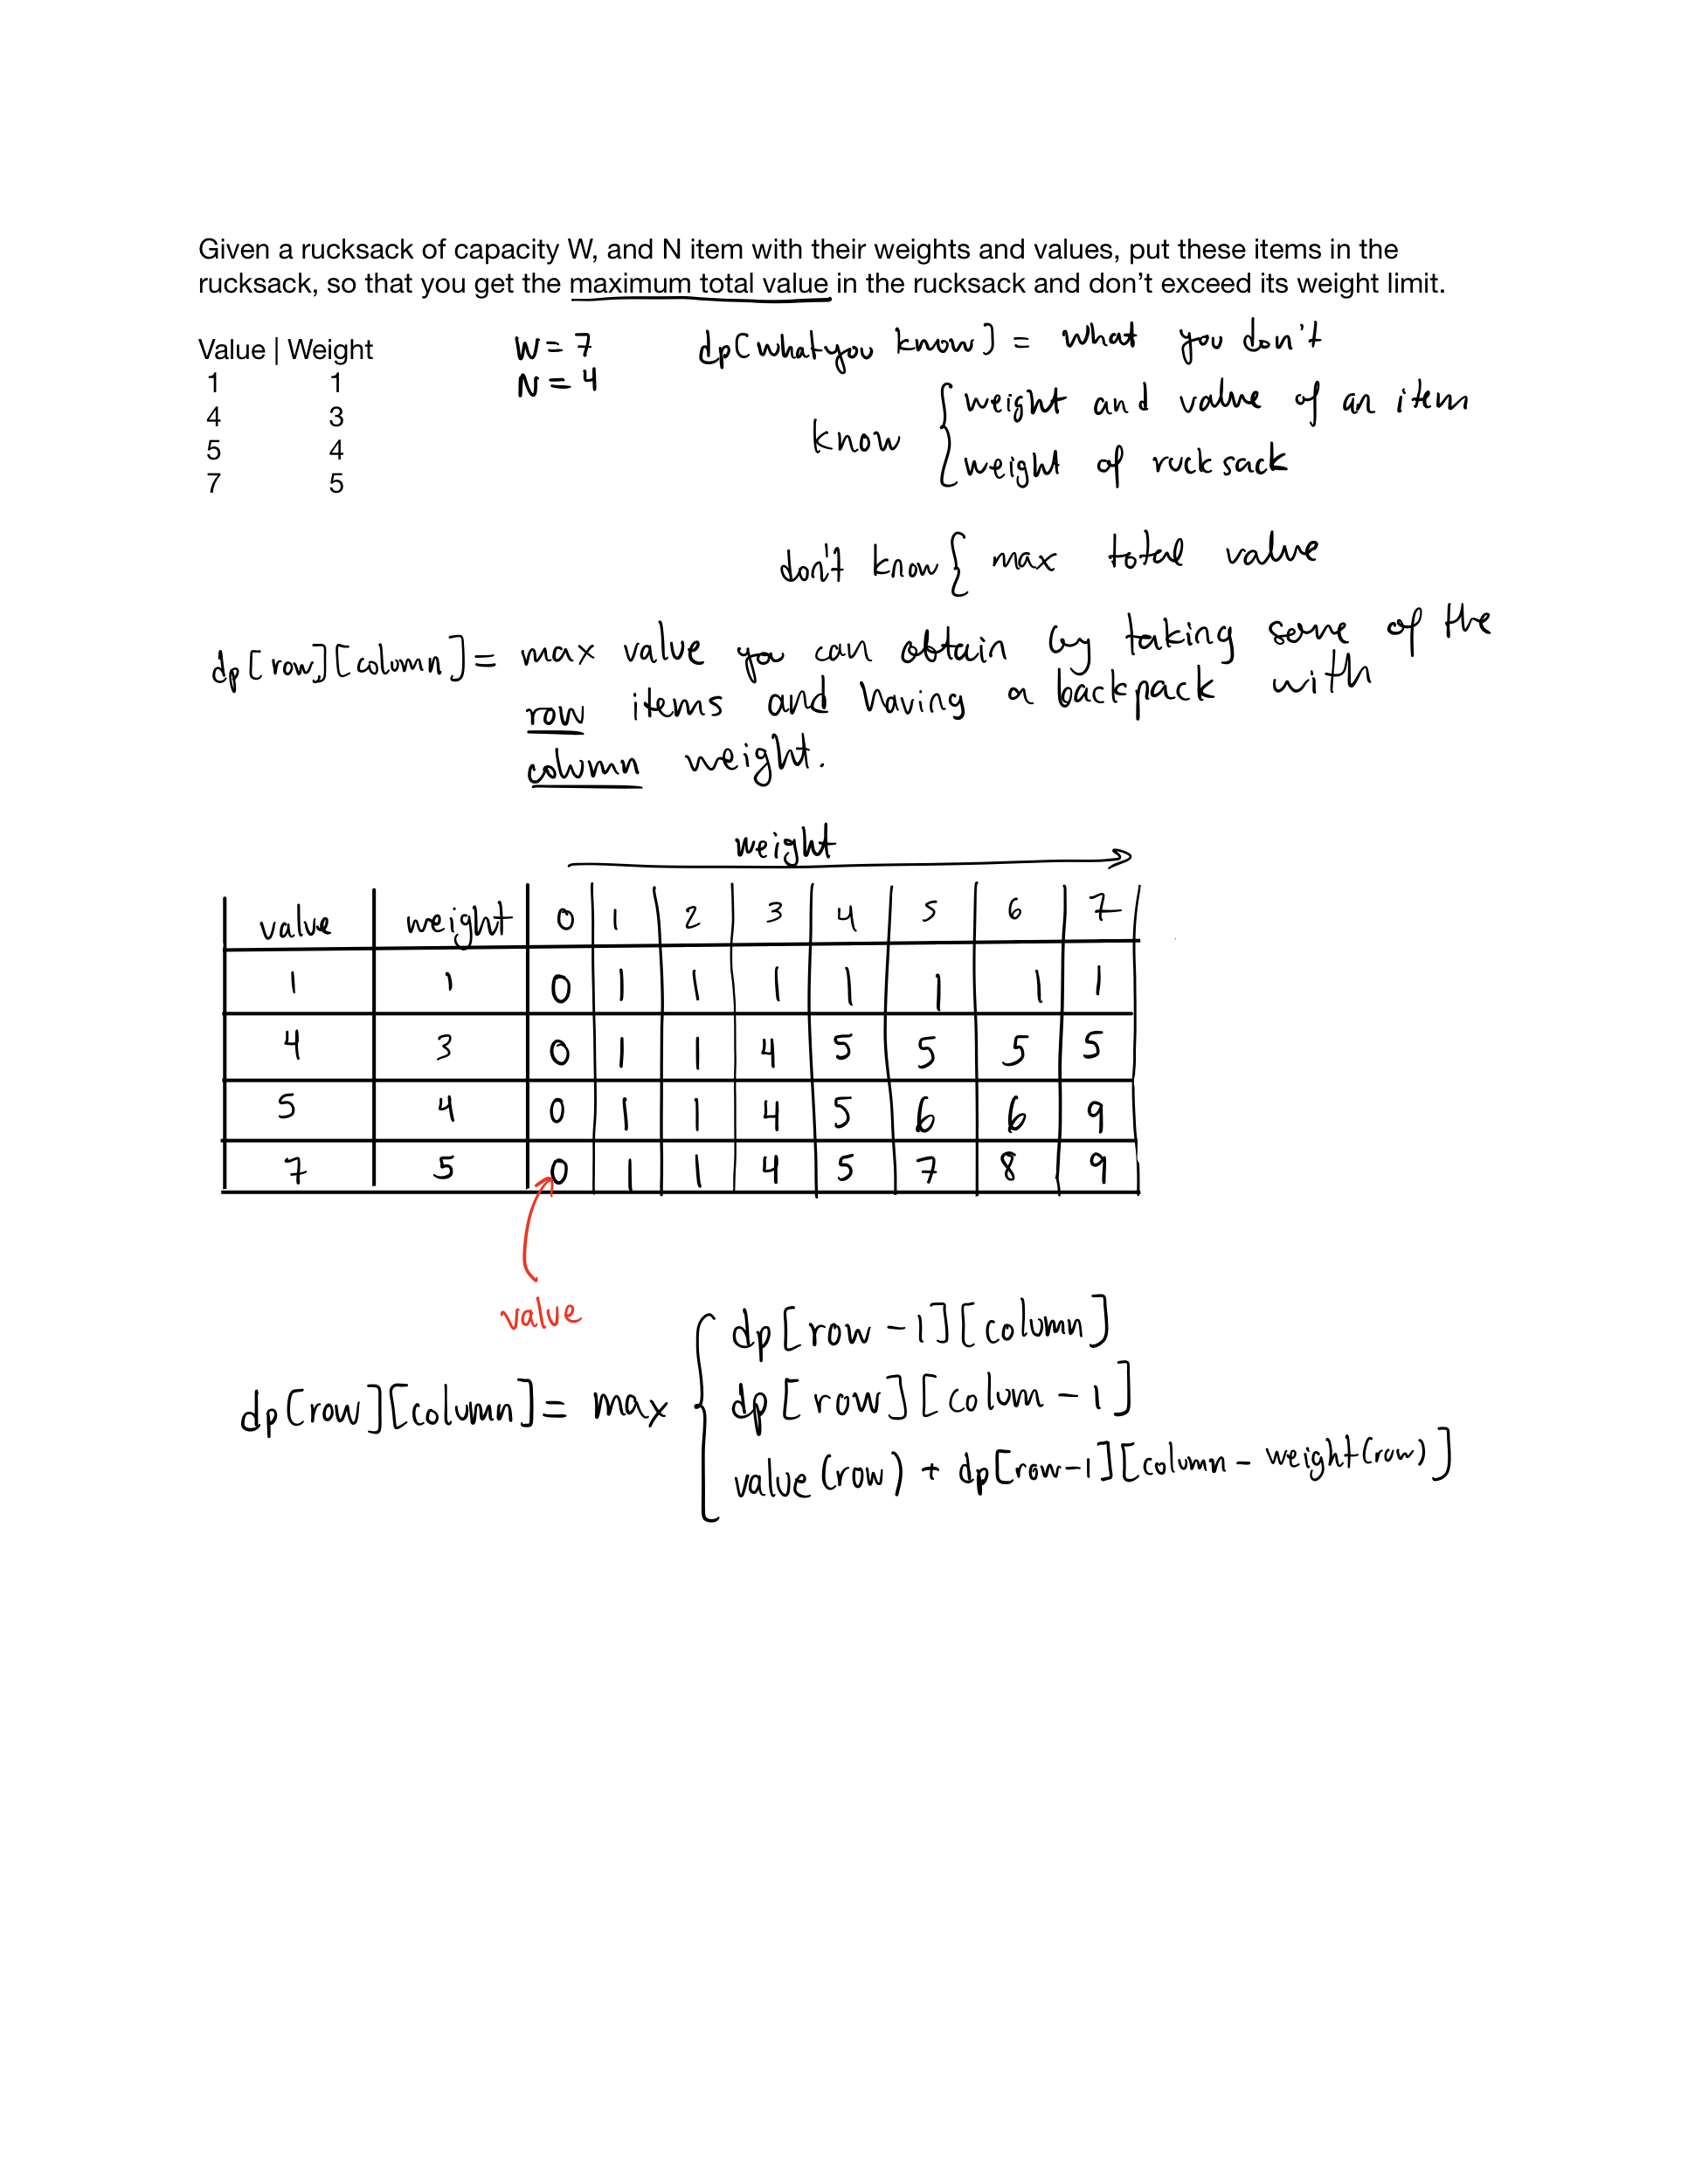 Given a rucksack of capacity W, and N item with their weights and values, put these items in the
rucksack, so that you get the maximum total value in the rucksack and don’t exceed its weight limit.
Value | Weight
1 1
4 3
5 4
7 5
W = 7
N = 4
dp[what you know] = what you don't
know { weight and value of an item
weight of rucksack
don't know { max total value
dp[row][column] = max value you can obtain by taking some of the
row items and having a backpack with
column weight.
weight
value weight 0 1 2 3 4 5 6 7
1 1 0 1 1 1 1 1 1 1
4 3 0 1 1 4 5 5 5 5
5 4 0 1 1 4 5 6 6 9
7 5 0 1 1 4 5 7 8 9
value
dp[row][column] = max { dp[row-1][column]
dp[row][colum-1]
value(row) + dp[row-1][column - weight(row)]